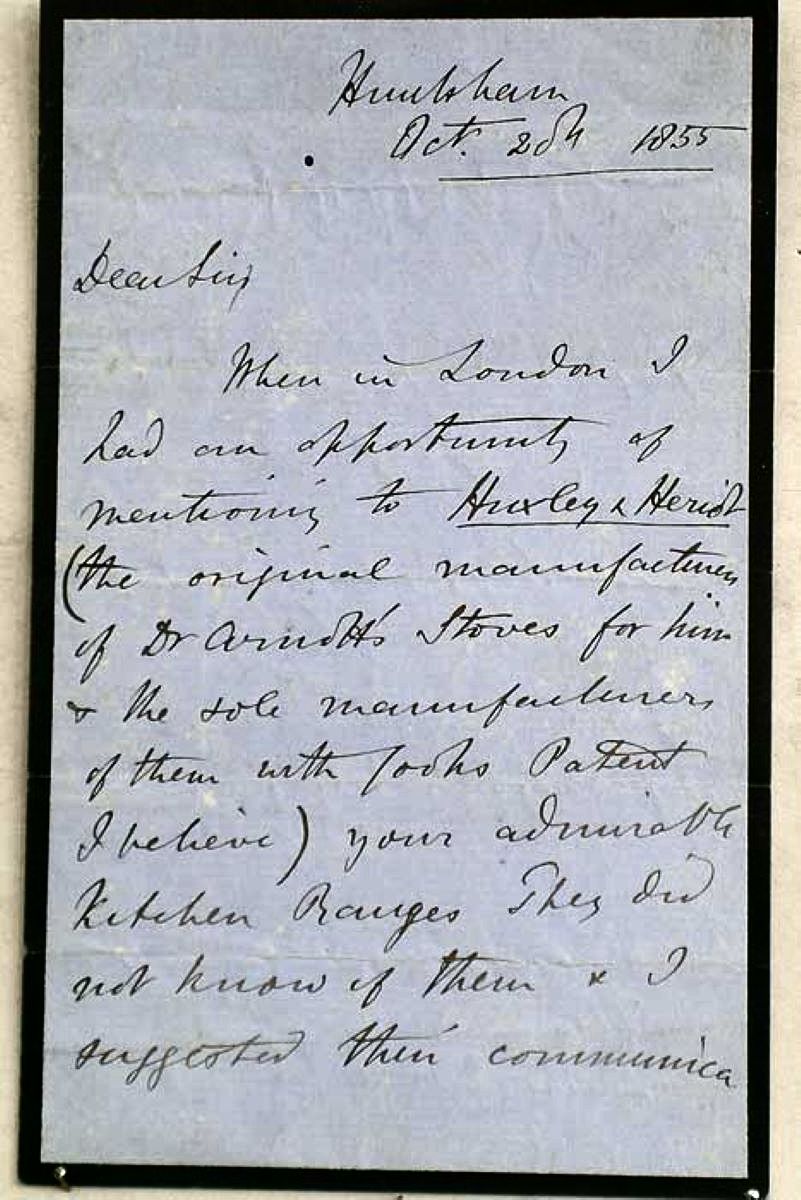 Huntsham
Oct. 20th 1855
Dear Sir,
When in London I
had an opportunity of
mentioning to Huxley & Heriot
(the original manufacturers
of Dr Arnott's Stoves for him
& the sole manufacturers
of them with Patent
I believe) your admirable
Kitchen Ranges They did
not know of them & I
suggested their communica